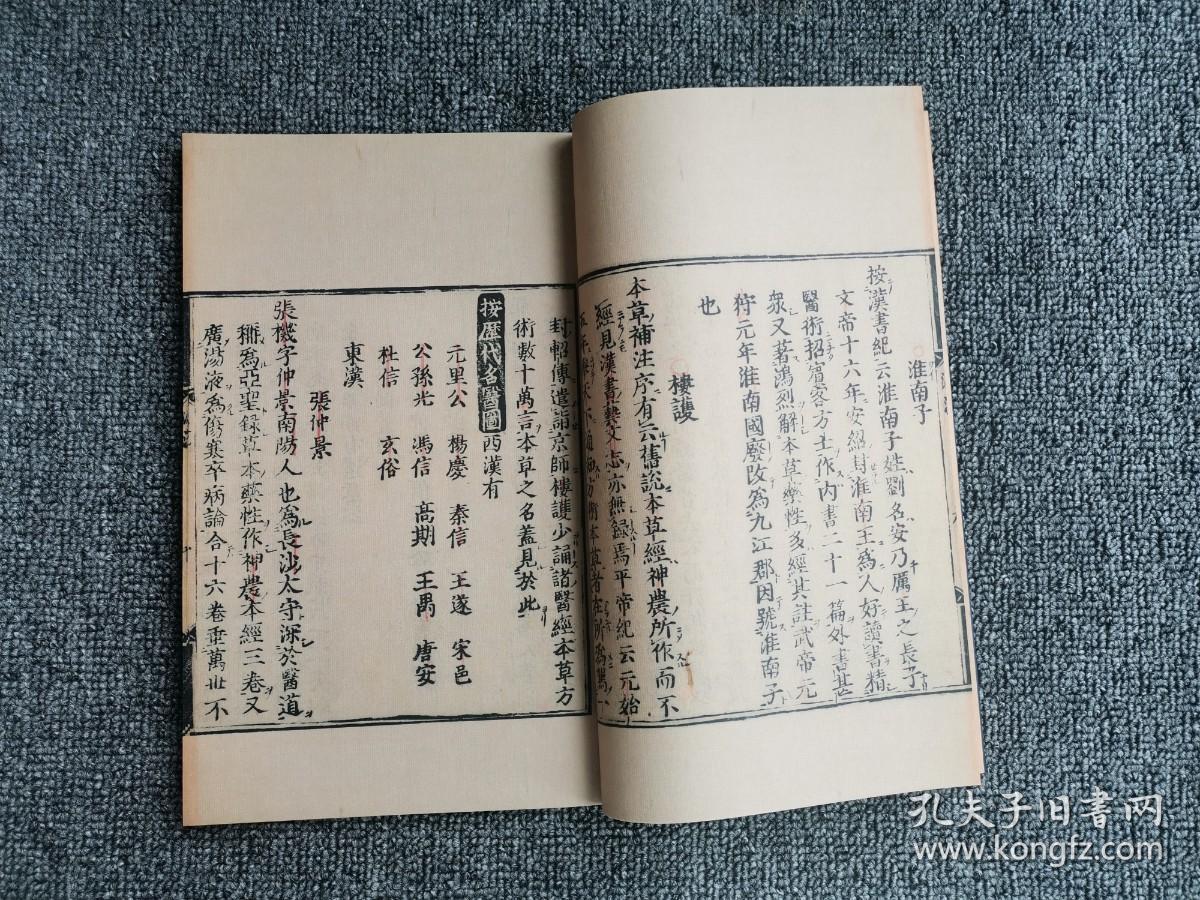 淮南子
按漢書紀云淮南子姓劉名安乃厲王之長子
文帝十六年安紹封淮南王為人好讀書精
醫術招賓客方士作内書二十一篇外書甚
衆又著鴻烈解本草藥性多經其註武帝元
狩元年淮南國廢改為九江郡因號淮南子
也
樓護
本草補注序有云舊說本草經神農所作而不
經見漢書藝文志亦無録焉平帝紀云元始
術本草者在所為駕一
封軺傳遣詣京師樓護少誦諸醫經本草方
術數十萬言本草之名蓋見於此
按歷代名醫圖西漢有
元里公 楊慶 秦信 王遂 宋邑
公孫光 馮信 高期 王禺 唐安
杜信 玄俗
東漢
張仲景
張機字仲景南陽人也為長沙太守深於醫道
稱為亞聖録草本藥性作神農本經三卷又
廣湯液為傷寒卒病論合十六卷垂萬世不
孔夫子旧书网
www.kongfz.com